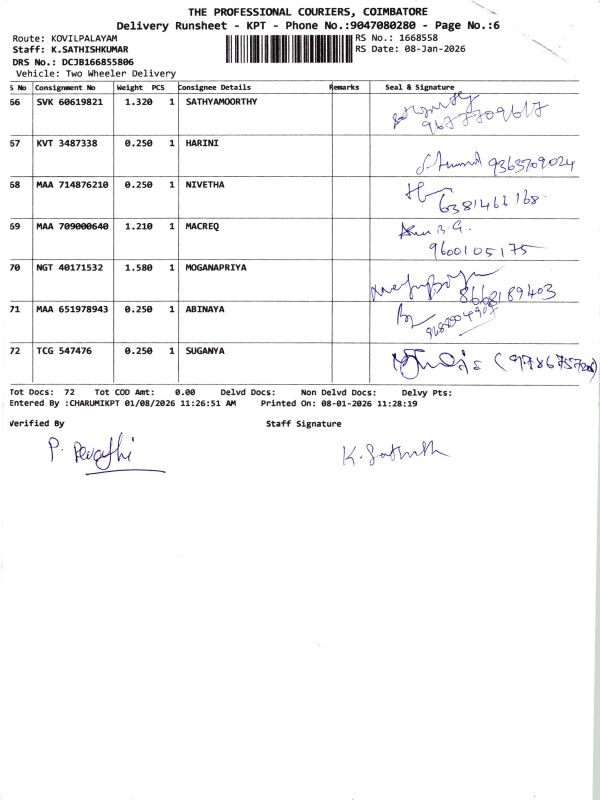 THE PROFESSIONAL COURIERS, COIMBATORE
Delivery Runsheet - KPT - Phone No.:9047080280 - Page No.:6
Route: KOVILPALAYAM
Staff: K.SATHISHKUMAR
DRS No.: DCJB166855806
Vehicle: Two Wheeler Delivery
RS No.: 1668558
RS Date: 08-Jan-2026
S No Consignment No Weight PCS Consignee Details Remarks Seal & Signature
66 SVK 60619821 1.320 1 SATHYAMOORTHY
9677709617
67 KVT 3487338 0.250 1 HARINI
9363709024
68 MAA 714876210 0.250 1 NIVETHA
69 MAA 709000640 1.210 1 MACREQ
9600105175
70 NGT 40171532 1.580 1 MOGANAPRIYA
8668189403
71 MAA 651978943 0.250 1 ABINAYA
72 TCG 547476 0.250 1 SUGANYA
Tot Docs: 72 Tot COD Amt: 0.00 Delvd Docs: Non Delvd Docs: Delvy Pts:
Entered By :CHARUMIKPT 01/08/2026 11:26:51 AM Printed On: 08-01-2026 11:28:19
Verified By Staff Signature
P. Revathi K. Sathish